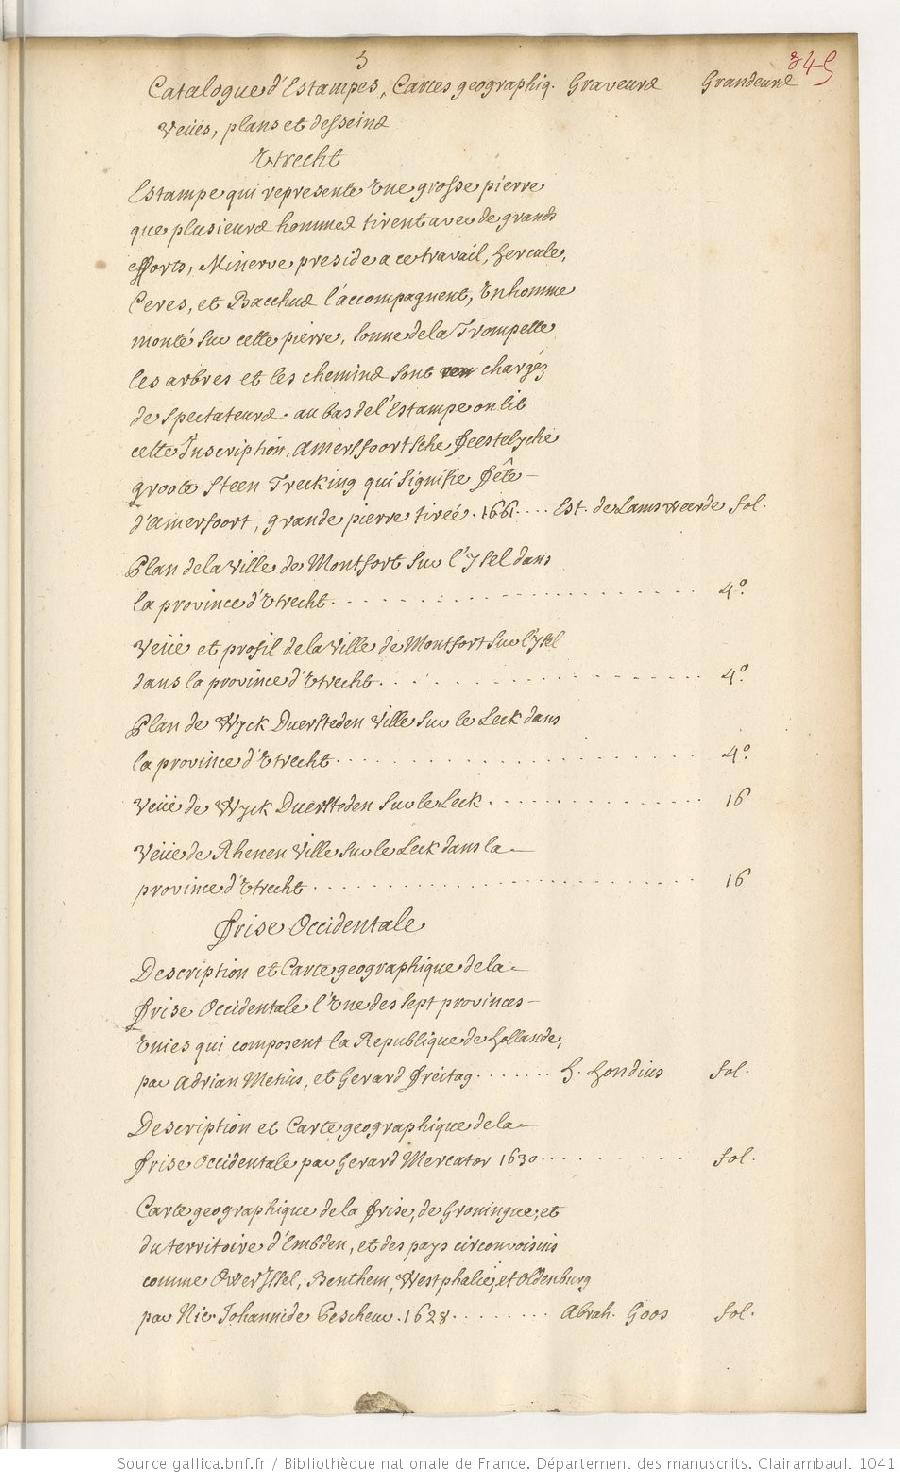 5
345
Catalogue d'Estampes, Cartes geographiq. Graveurs Grandeurs
Veües, plans et desseins
Utrecht
Estampe qui represente Une grosse pierre
que plusieurs hommes tirent avec de grands
efforts, Minerve preside a ce travail, hercule,
Ceres, et Bacchus l'accompagnent, Un homme
monté sur cette pierre, sonne de la Trompette
les arbres et les chemins sont chargéz
de spectateurs. au bas de l'Estampe on lit
cette Inscription, Amersfoortsche feestelyche
groote Steen Trecking qui signifie fête
d'Amersfoort, grande pierre tireé. 1661.... Est. de Lamsweerde fol.
Plan de la Ville de Montfort sur l'ysel dans
la province d'Utrecht. 4.º
Veüe et profil de la Ville de Montfort sur l'ysel
dans la province d'Utrecht. 4.º
Plan de Wyck Duersteden Ville sur le Leck dans
la province d'Utrecht. 4.º
Veüe de Wyck Duersteden sur le Leck. 16
Veüe de Rhenen Ville sur le Leck dans la
province d'Utrecht. 16
frise Occidentale
Description et Carte geographique de la
frise Occidentale l'Une des sept provinces
Unies qui composent la Republique de hollande,
par Adrian Metius, et Gerard freitag. h. hondius fol.
Description et Carte geographique de la
frise Occidentale par Gerard Mercator 1630 fol.
Carte geographique de la frise, de Groningue, et
du territoire d'Embden, et des pays circonvoisins
comme OverYssel, Benthem, Westphalie, et Oldenburg
par Nic. Johannide Pescheur. 1628. Abrah. Goos fol.
Source gallica.bnf.fr / Bibliothèque nationale de France. Département des manuscrits. Clairambault. 1041